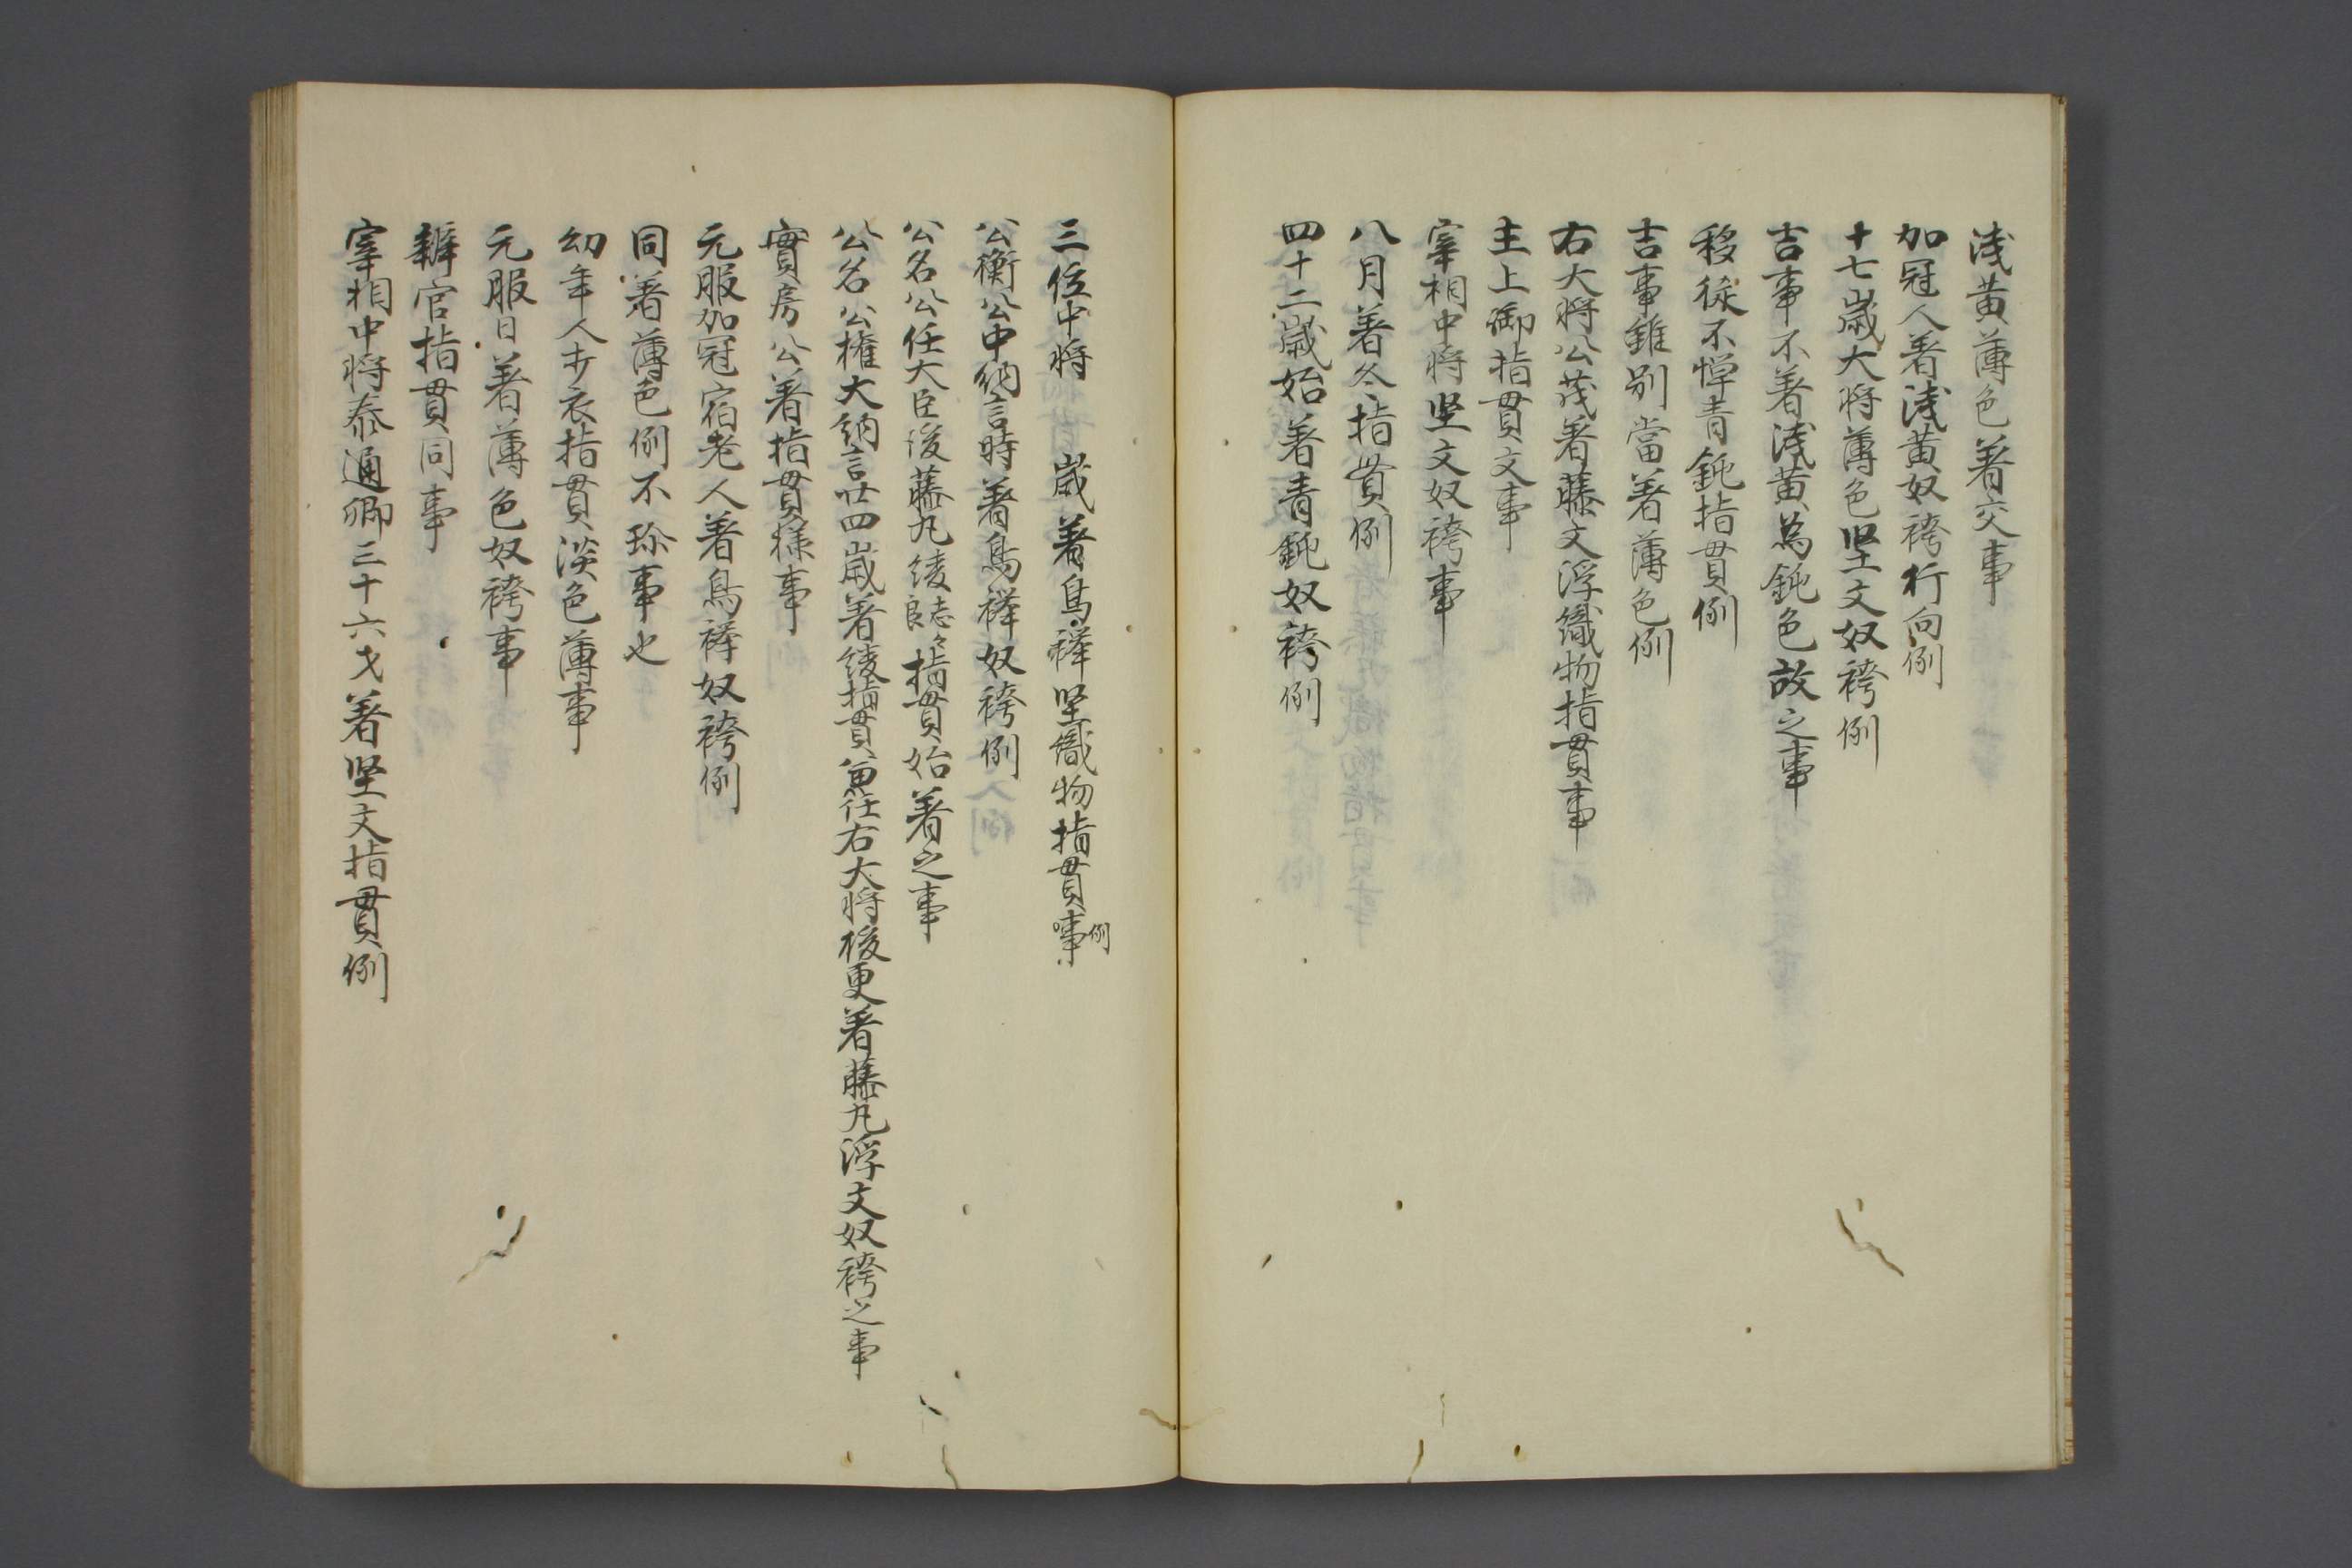 浅黄薄色着交事
加冠人着浅黄奴袴行向例
十七歳大将薄色堅文奴袴例
吉事不着浅黄為鈍色故之事
移徙不憚青鈍指貫例
吉事雖別當着薄色例
右大将公茂着藤文浮織物指貫事
主上御指貫文事
宰相中将堅文奴袴事
八月着冬指貫例
四十二歳始着青鈍奴袴例
三位中将 歳着鳥襷堅織物指貫事例
公衡公中納言時着鳥襷奴袴例
公名公任大臣後藤丸綾指貫始着之事
公名公権大納言廿四歳着綾指貫兼任右大将後更着藤丸浮文奴袴之事
實房公着指貫様事
元服加冠宿老人着鳥襷奴袴例
同着薄色例不珍事也
幼年人布衣指貫淡色薄事
元服日着薄色奴袴事
辨官指貫同事
宰相中将泰通卿三十六才着堅文指貫例